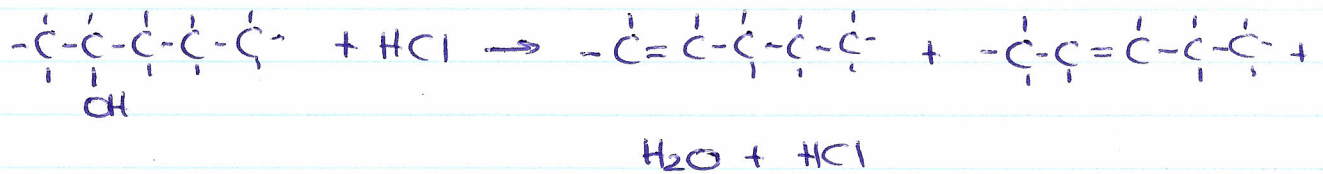 -C-C-C-C-C- + HCl → -C=C-C-C-C- + -C-C=C-C-C- +
OH
H2O + HCl